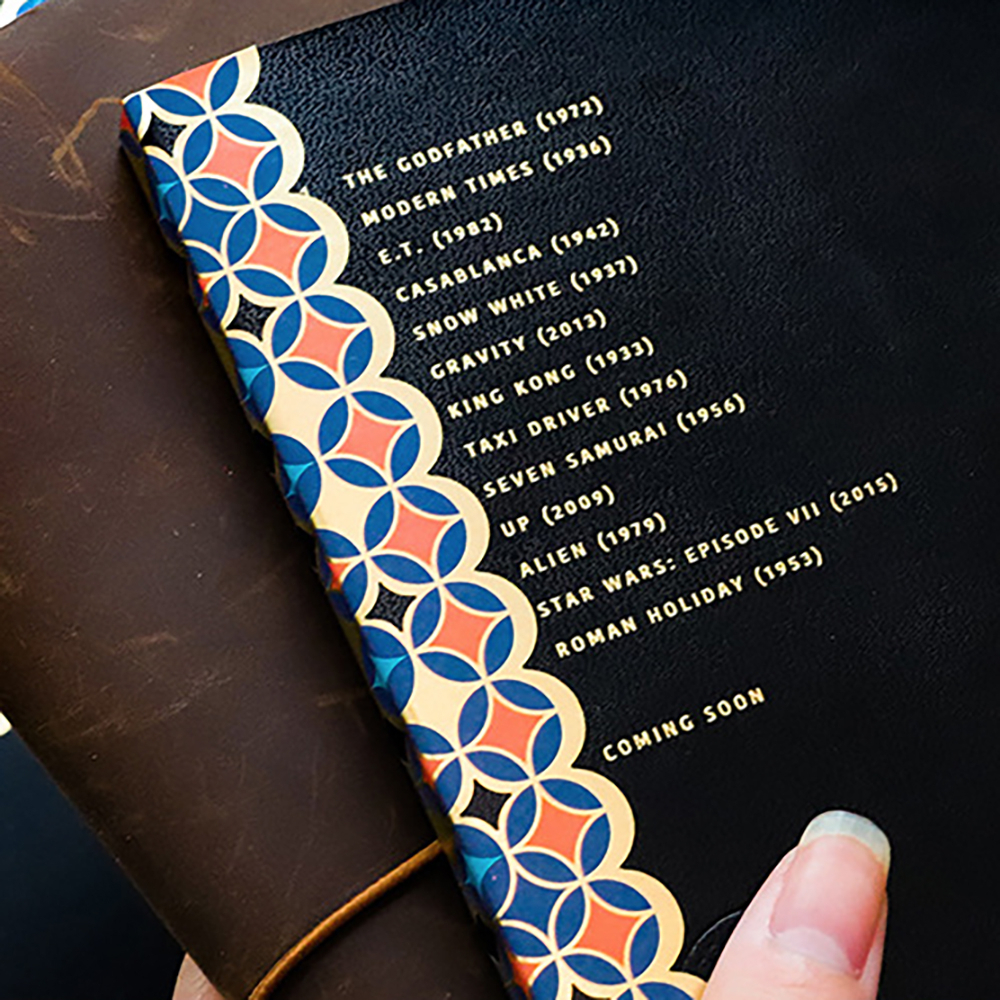 THE GODFATHER (1972)
MODERN TIMES (1936)
E.T. (1982)
CASABLANCA (1942)
SNOW WHITE (1937)
GRAVITY (2013)
KING KONG (1933)
TAXI DRIVER (1976)
SEVEN SAMURAI (1956)
UP (2009)
ALIEN (1979)
STAR WARS: EPISODE VII (2015)
ROMAN HOLIDAY (1953)
COMING SOON